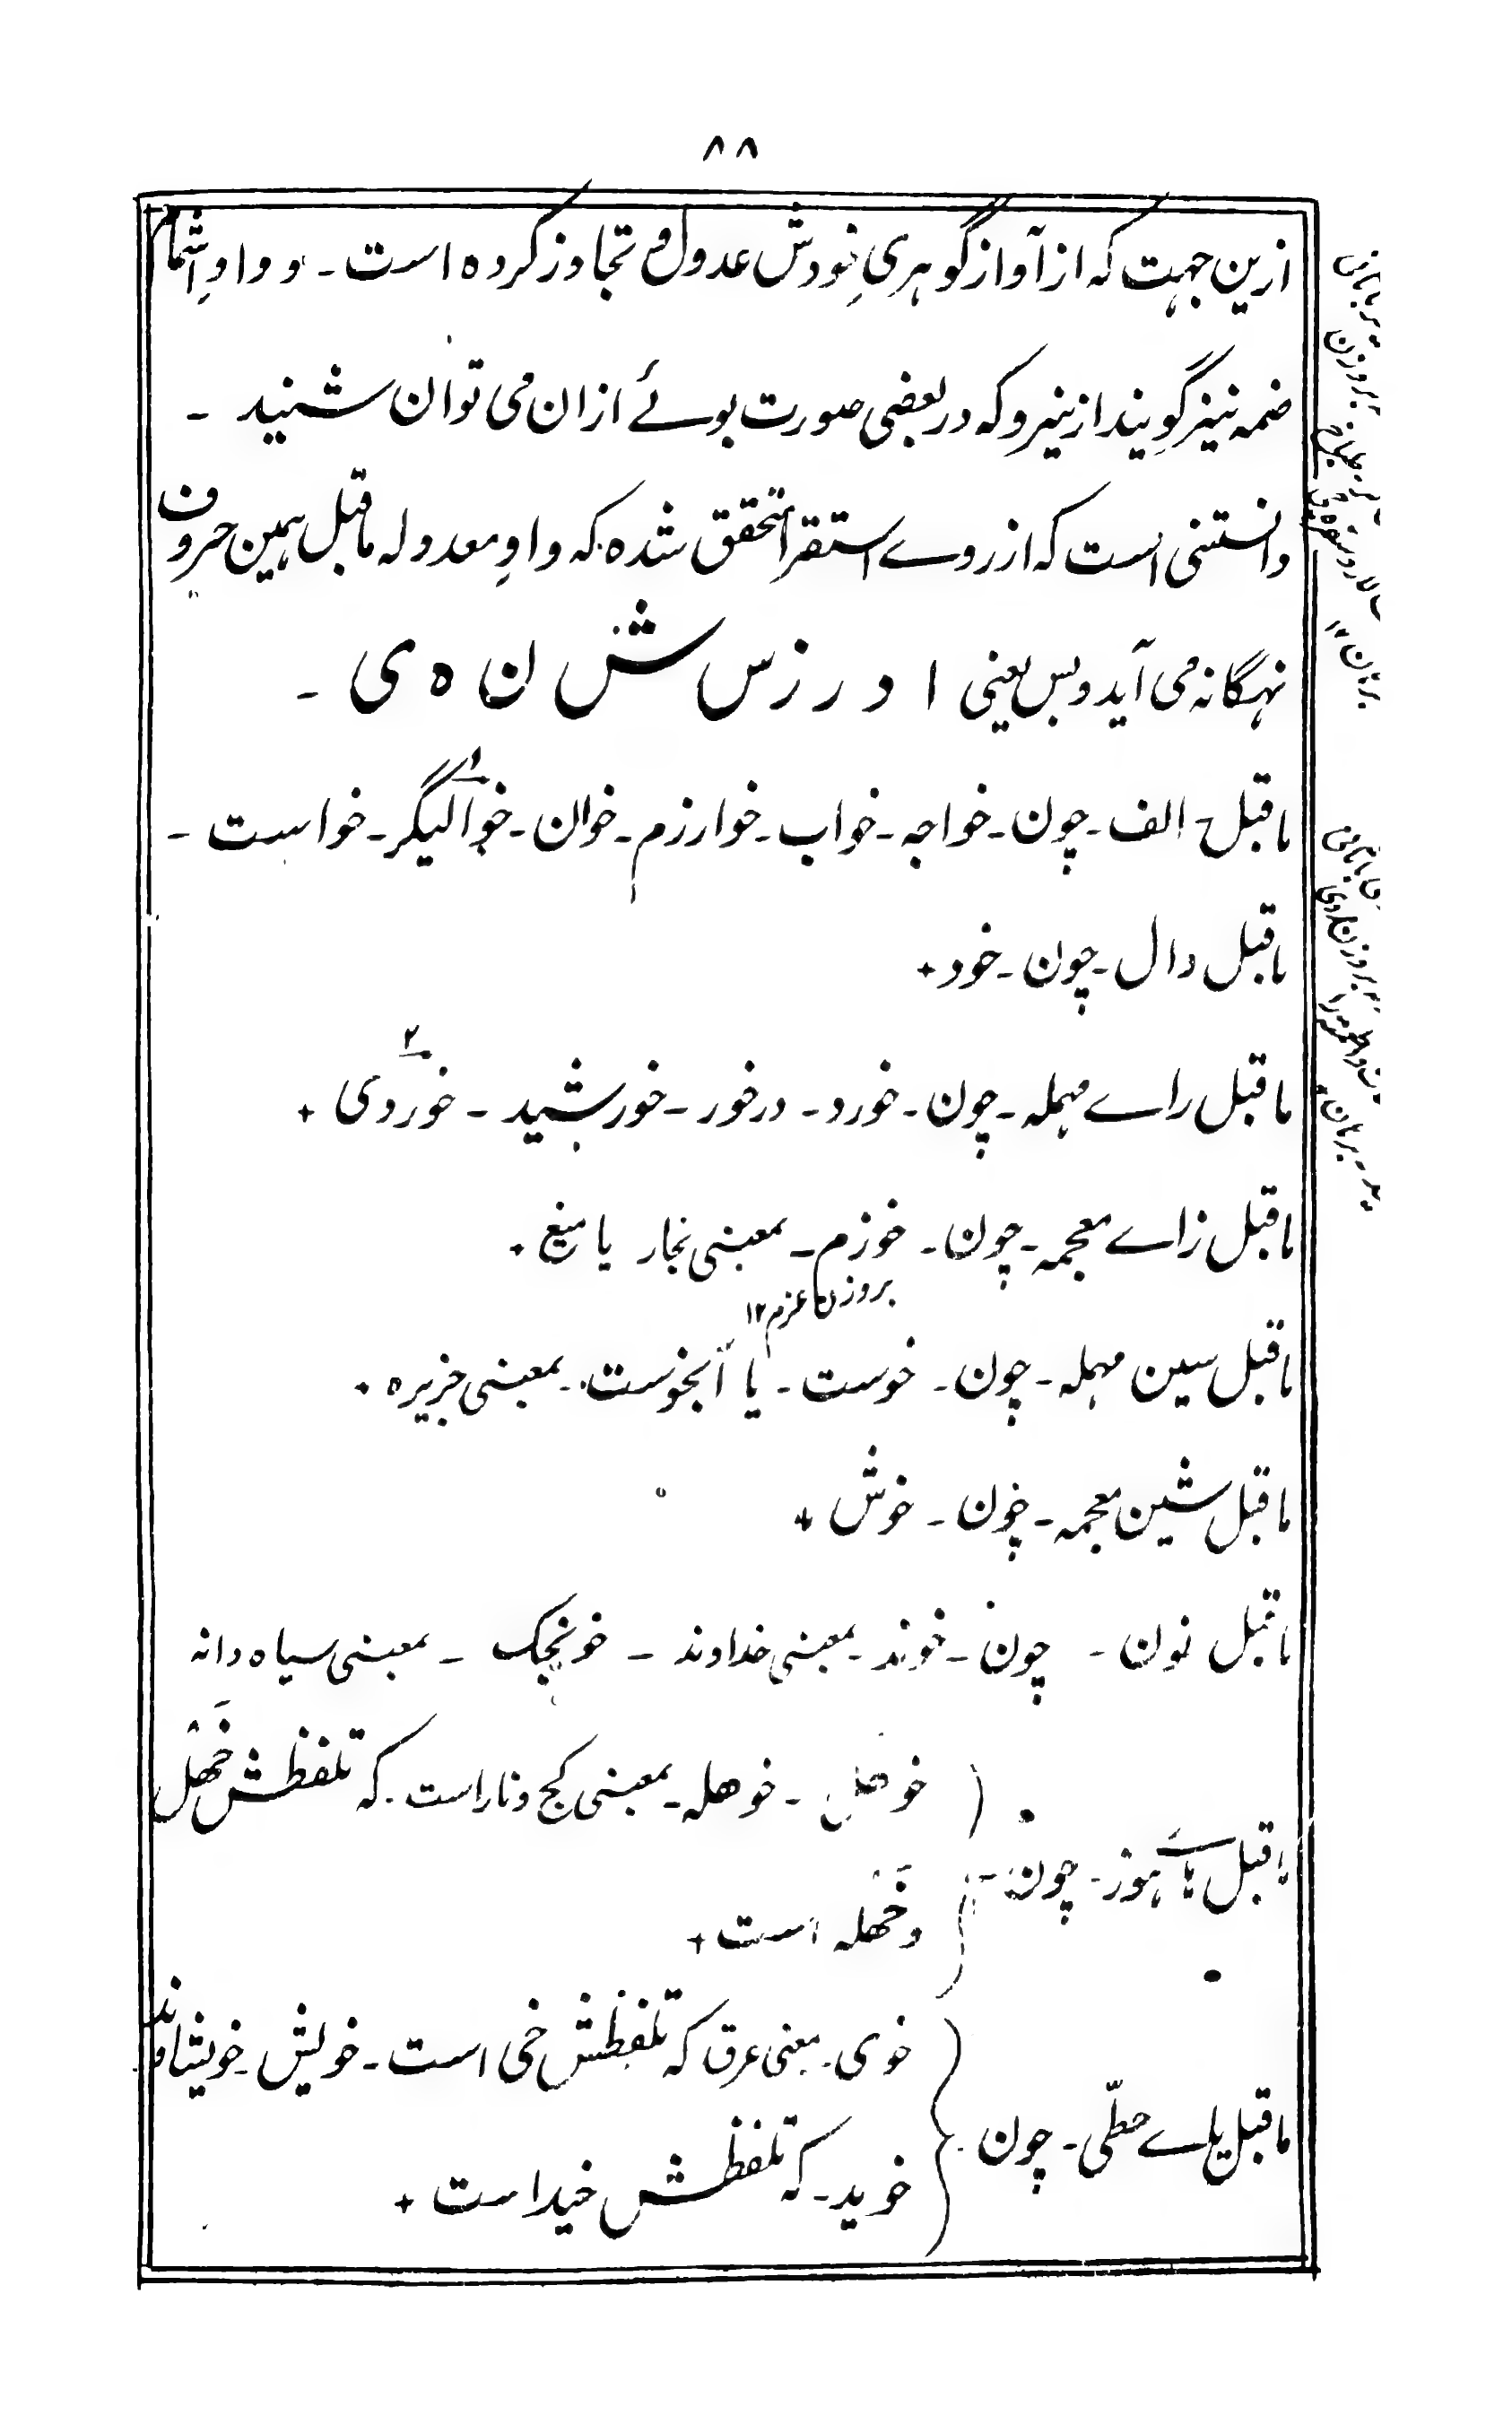 ۸۸
ازین جهت که از آواز گوهریِ خودش عدول و تجاوز کرده است - و واوِ اشمام
ضمه نیز گویند ازینرو که در بعضی صورت بوئے ازان می توان شنید -
دانستنی است که از روے استقرا متحقق شده که واوِ معدوله ماقبل همین حروف
نهگانه می آید و بس یعنی ا د ر ز س ش ن ه ی -
ماقبل الف - چون - خواجه - خواب - خوارزم - خوان - خوالیگر - خواست -
ماقبل دال - چون - خود +
ماقبل راے مهمله - چون - خورد - درخور - خورشید - خوردی ۲ +
ماقبل زاے معجمه - چون - خوزم - بمعنی بخار یا میغ +
بروزن عزم ۱۲
ماقبل سین مهمله - چون - خوست - یا آبخوست - بمعنی جزیره +
ماقبل شین معجمه - چون - خوش +
ماقبل نون - چون - خوند - بمعنی خداوند - خونچک - بمعنی سیاه دانه
ماقبل هاے هوز - چون - خوهل - خوهله - بمعنی کج و ناراست - که تلفظش خَهْل
و خَهْله است +
ماقبل یاے حطّی - چون خوی - بمعنی عرق که تلفظش خی است - خویش - خویشاوند
خوید - که تلفظش خید است +
بروزن
برهان ۱۲
بروزن
برهان